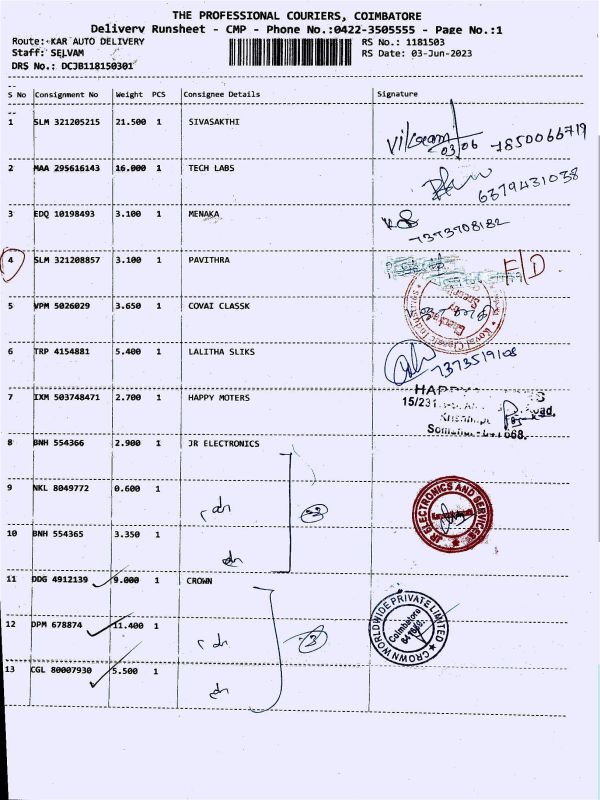 THE PROFESSIONAL COURIERS, COIMBATORE
Delivery Runsheet - CMP - Phone No.:0422-3505555 - Page No.:1
Route: KAR AUTO DELIVERY RS No.: 1181503
Staff: SELVAM RS Date: 03-Jun-2023
DRS No.: DCJB118150301
S No Consignment No Weight PCS Consignee Details Signature
1 SLM 321205215 21.500 1 SIVASAKTHI
03/06 7850066719
2 MAA 295616143 16.000 1 TECH LABS
6379431038
3 EDQ 10198493 3.100 1 MENAKA
7373708182
4 SLM 321208857 3.100 1 PAVITHRA F/D
5 VPM 5026029 3.650 1 COVAI CLASSK
6 TRP 4154881 5.400 1 LALITHA SLIKS
7373519108
7 IXM 503748471 2.700 1 HAPPY MOTERS
HAPPY
15/231
8 BNH 554366 2.900 1 JR ELECTRONICS
9 NKL 8049772 0.600 1
JR ELECTRONICS AND SERVICES
10 BNH 554365 3.350 1
11 DDG 4912139 9.000 1 CROWN
12 DPM 678874 11.400 1
3
CROWN WORLDWIDE PRIVATE LIMITED
Coimbatore
13 CGL 80007930 5.500 1